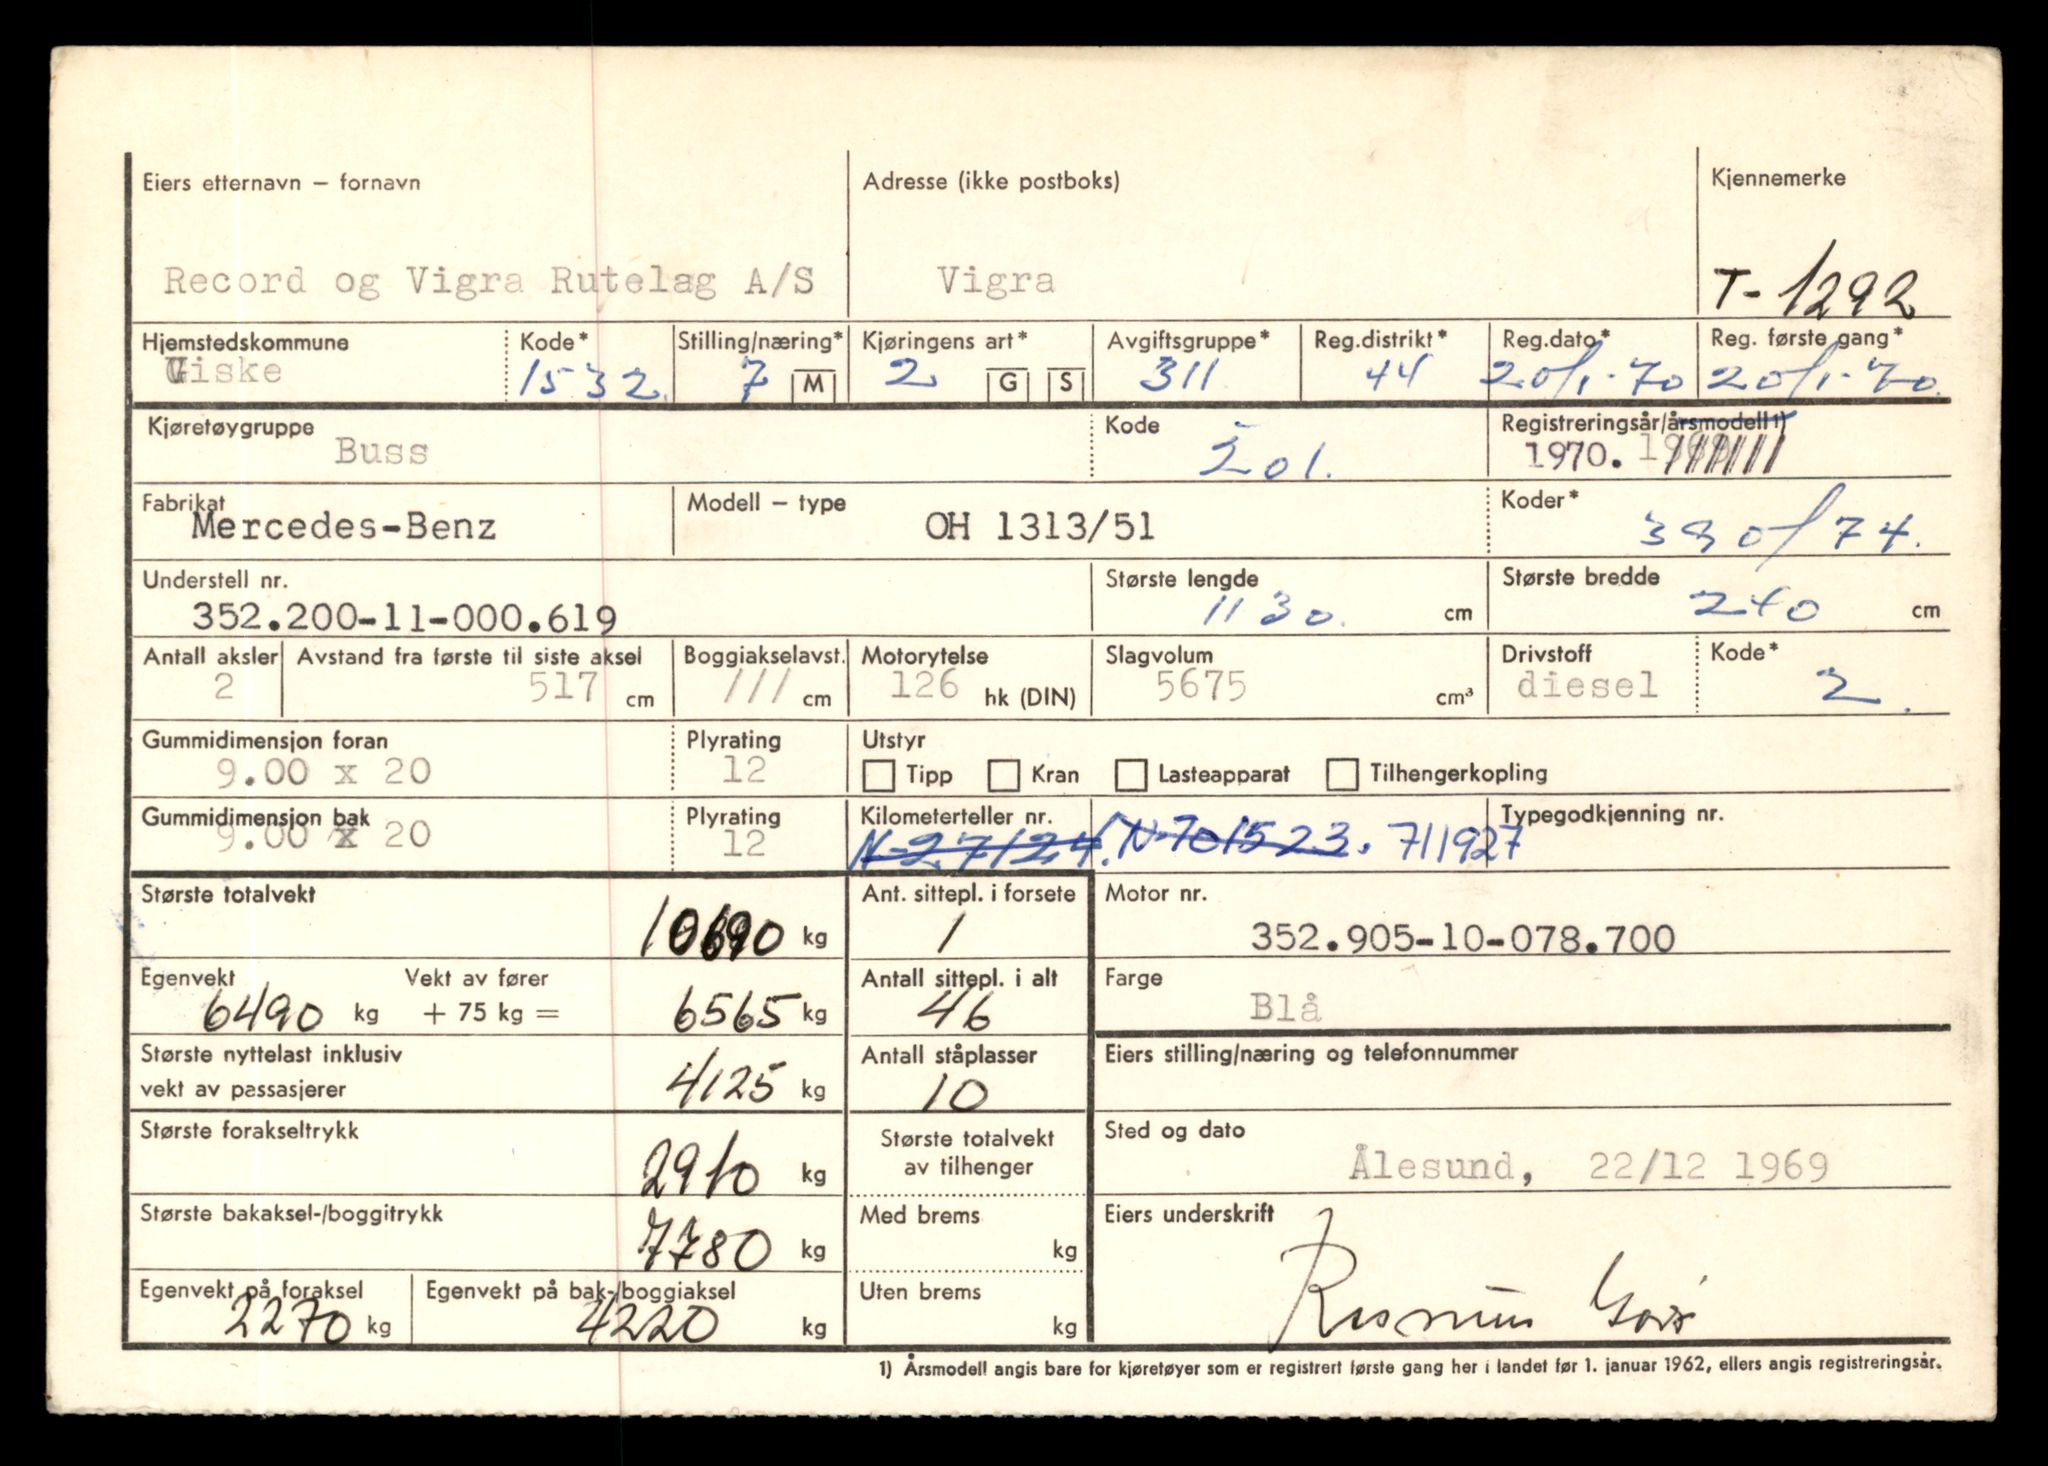 Eiers etternavn – fornavn Adresse (ikke postboks) Kjennemerke
Record og Vigra Rutelag A/S Vigra T-1292
Hjemstedskommune Kode* Stilling/næring* Kjøringens art* Avgiftsgruppe* Reg.distrikt* Reg.dato* Reg. første gang*
Giske 1532 7 M 2 G S 311 44 20/1-70 20/1-70
Kjøretøygruppe Kode Registreringsår/årsmodell 1)
Buss 201. 1970.
Fabrikat Modell – type Koder*
Mercedes-Benz OH 1313/51 390/74.
Understell nr. Største lengde Største bredde
352.200-11-000.619 1130. cm 240 cm
Antall aksler Avstand fra første til siste aksel Boggiakselavst. Motorytelse Slagvolum Drivstoff Kode*
2 517 cm /// cm 126 hk (DIN) 5675 cm³ diesel 2.
Gummidimensjon foran Plyrating Utstyr
9.00 x 20 12 Tipp Kran Lasteapparat Tilhengerkopling
Gummidimensjon bak Plyrating Kilometerteller nr. Typegodkjenning nr.
9.00 x 20 12 N-27124. N-701523. 711927
Største totalvekt Ant. sittepl. i forsete Motor nr.
10690 kg 1 352.905-10-078.700
Egenvekt Vekt av fører Antall sittepl. i alt Farge
6490 kg + 75 kg = 6565 kg 46 Blå
Største nyttelast inklusiv Antall ståplasser Eiers stilling/næring og telefonnummer
vekt av passasjerer 4125 kg 10
Største forakseltrykk Største totalvekt Sted og dato
2910 kg av tilhenger Ålesund, 22/12 1969
Største bakaksel-/boggitrykk Med brems Eiers underskrift
7780 kg kg
Egenvekt på foraksel Egenvekt på bak-/boggiaksel Uten brems
2270 kg 4220 kg kg Rasmus
1) Årsmodell angis bare for kjøretøyer som er registrert første gang her i landet før 1. januar 1962, ellers angis registreringsår.